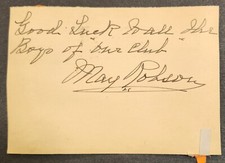 Good Luck to all the
Boys of "Our Club"
May Robson